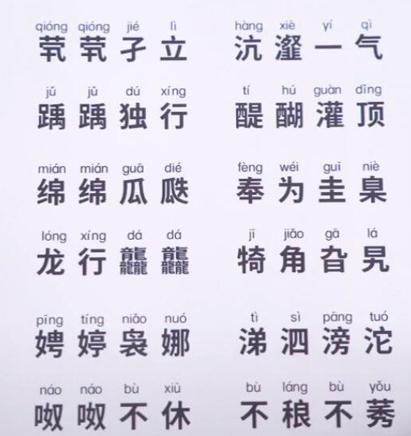 qióng qióng jié lì hàng xiè yí qì
茕茕孑立 沆瀣一气
jǔ jǔ dú xíng tí hú guàn dǐng
踽踽独行 醍醐灌顶
mián mián guā dié fèng wéi guī niè
绵绵瓜瓞 奉为圭臬
lóng xíng dá dá jī jiǎo gā lá
龙行龘龘 犄角旮旯
pīng tíng niǎo nuó tì sì pāng tuó
娉婷袅娜 涕泗滂沱
náo náo bù xiū bù láng bù yǒu
呶呶不休 不稂不莠